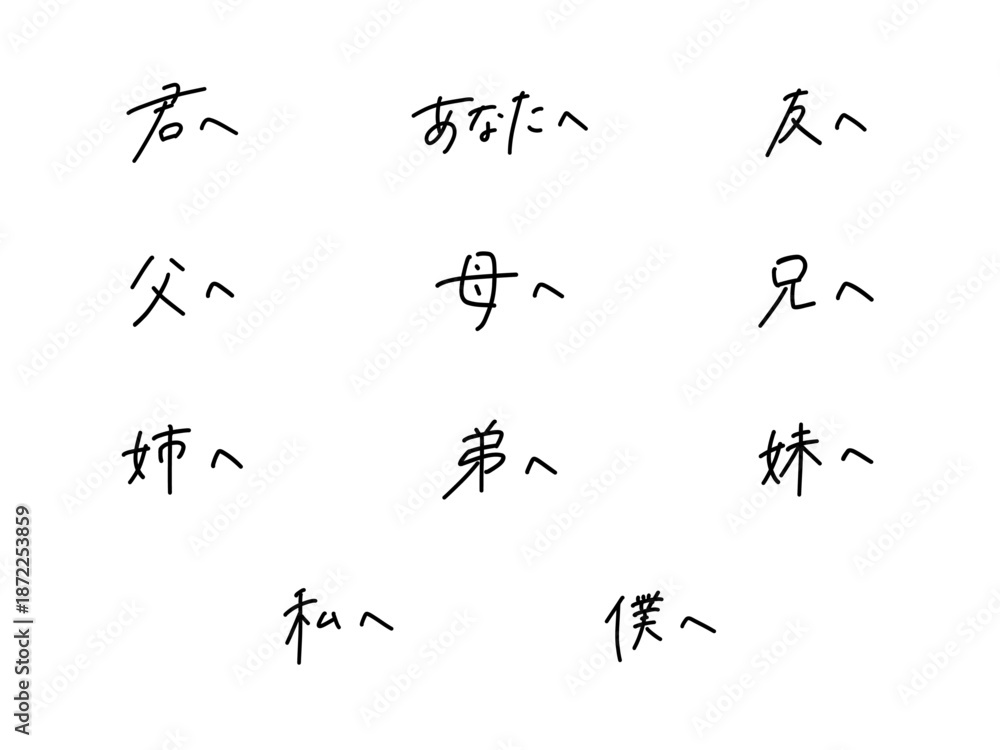 君へ あなたへ 友へ
父へ 母へ 兄へ
姉へ 弟へ 妹へ
私へ 僕へ
Adobe Stock | #1872253859